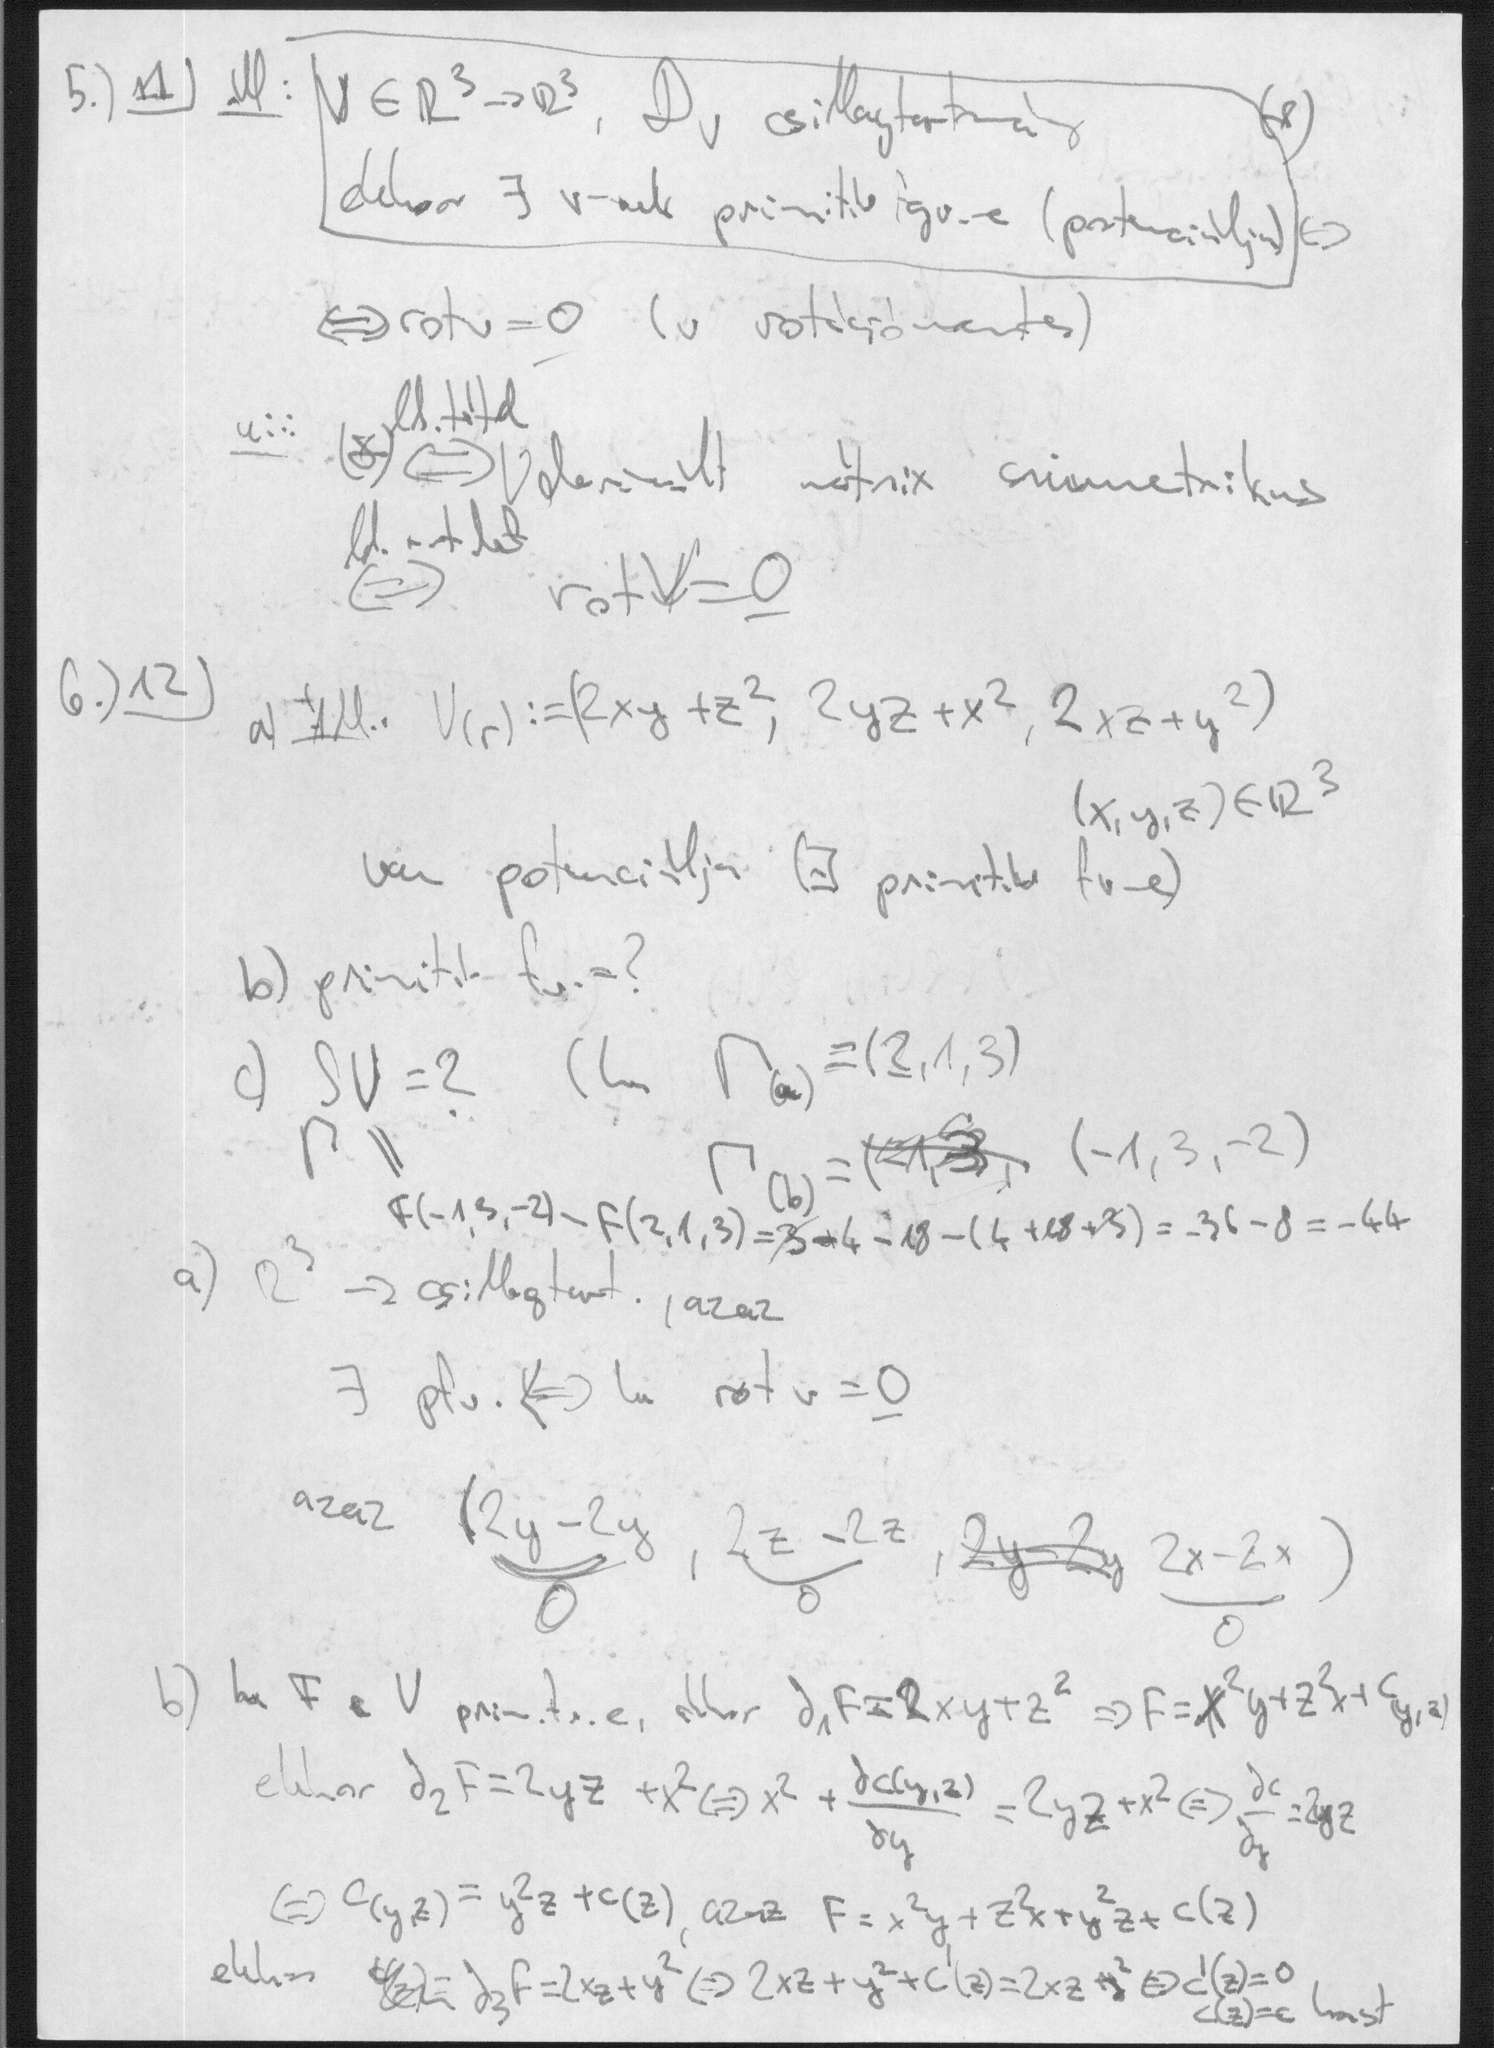 5.) 11) Áll: V ∈ R³→R³, D_v csillagtartomány (*)
ekkor ∃ v-nek primitív fgv.-e (potenciálja) ⇔
⇔ rot v = 0 (v rotációmentes)
u.i.: (*) ld. tétel ⇔ V derivált mátrix szimmetrikus
ld. ⇔ rot V = 0
6.) 12)
a) Áll.: V(r) := (2xy + z², 2yz + x², 2xz + y²)
(x, y, z) ∈ R³
van potenciálja (∃ primitív fv-e)
b) primitív fv. = ?
c) ∫V = ? (ha Γ(a) = (2, 1, 3)
Γ || Γ(b) = (-1, 3, -2)
F(-1, 3, -2) - F(2, 1, 3) = 3 + 4 - 18 - (4 + 18 + 3) = -36 - 8 = -44
a) R³ → csillagtart., azaz
∃ pfv. ⇔ ha rot v = 0
azaz (2y - 2y, 2z - 2z, 2y - 2y 2x - 2x)
0 0 0
b) ha F a V prim.fv.-e, akkor ∂₁F = 2xy + z² ⇒ F = x²y + z²x + c(y,z)
ekkor ∂₂F = 2yz + x² ⇔ x² + ∂c(y,z)/∂y = 2yz + x² ⇔ ∂c/∂y = 2yz
⇔ c(y,z) = y²z + c(z), azaz F = x²y + z²x + y²z + c(z)
ekkor ∂₃F = 2xz + y² ⇔ 2xz + y² + c'(z) = 2xz + y² ⇔ c'(z) = 0
c(z) = c konst